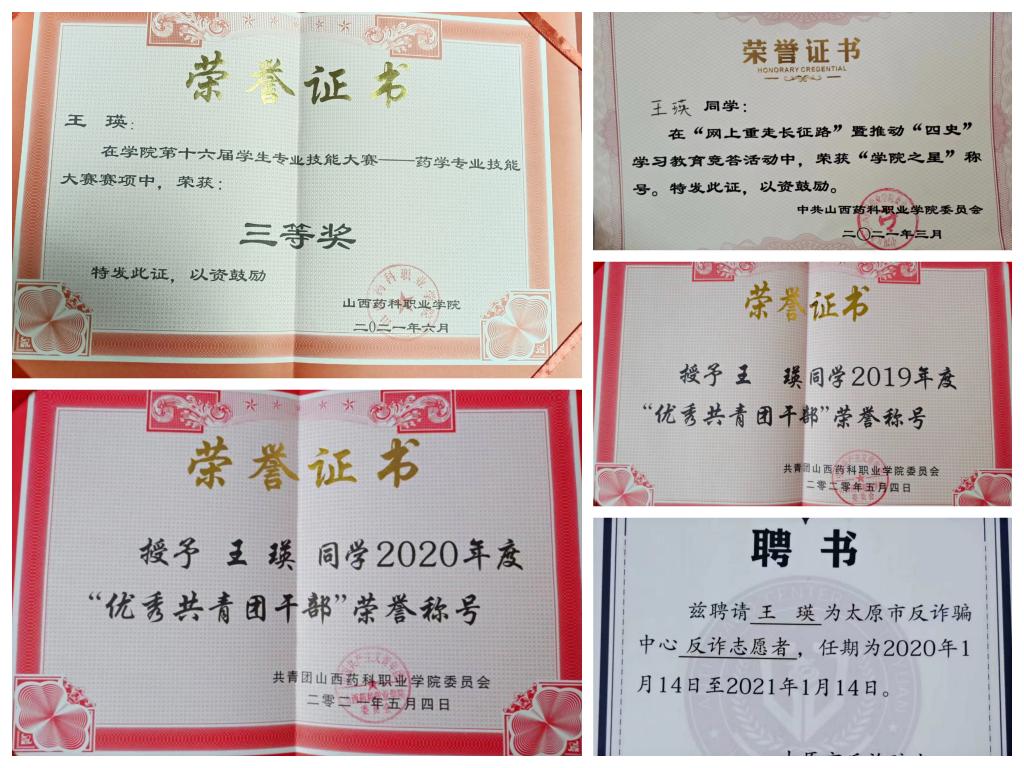 荣誉证书
王 瑛:
在学院第十六届学生专业技能大赛——药学专业技能
大赛赛项中，荣获:
三等奖
特发此证，以资鼓励
山西药科职业学院
二〇二一年六月
荣誉证书
HONORARY CREDENTIAL
王瑛 同学:
在“网上重走长征路”暨推动“四史”
学习教育竞答活动中，荣获“学院之星”称
号。特发此证，以资鼓励。
中共山西药科职业学院委员会
二〇二一年三月
荣誉证书
授予 王 瑛 同学2019年度
“优秀共青团干部”荣誉称号
共青团山西药科职业学院委员会
二零二零年五月四日
荣誉证书
授予 王 瑛 同学2020年度
“优秀共青团干部”荣誉称号
共青团山西药科职业学院委员会
二零二一年五月四日
聘书
兹聘请 王 瑛 为太原市反诈骗
中心 反诈志愿者，任期为2020年1
月14日至2021年1月14日。